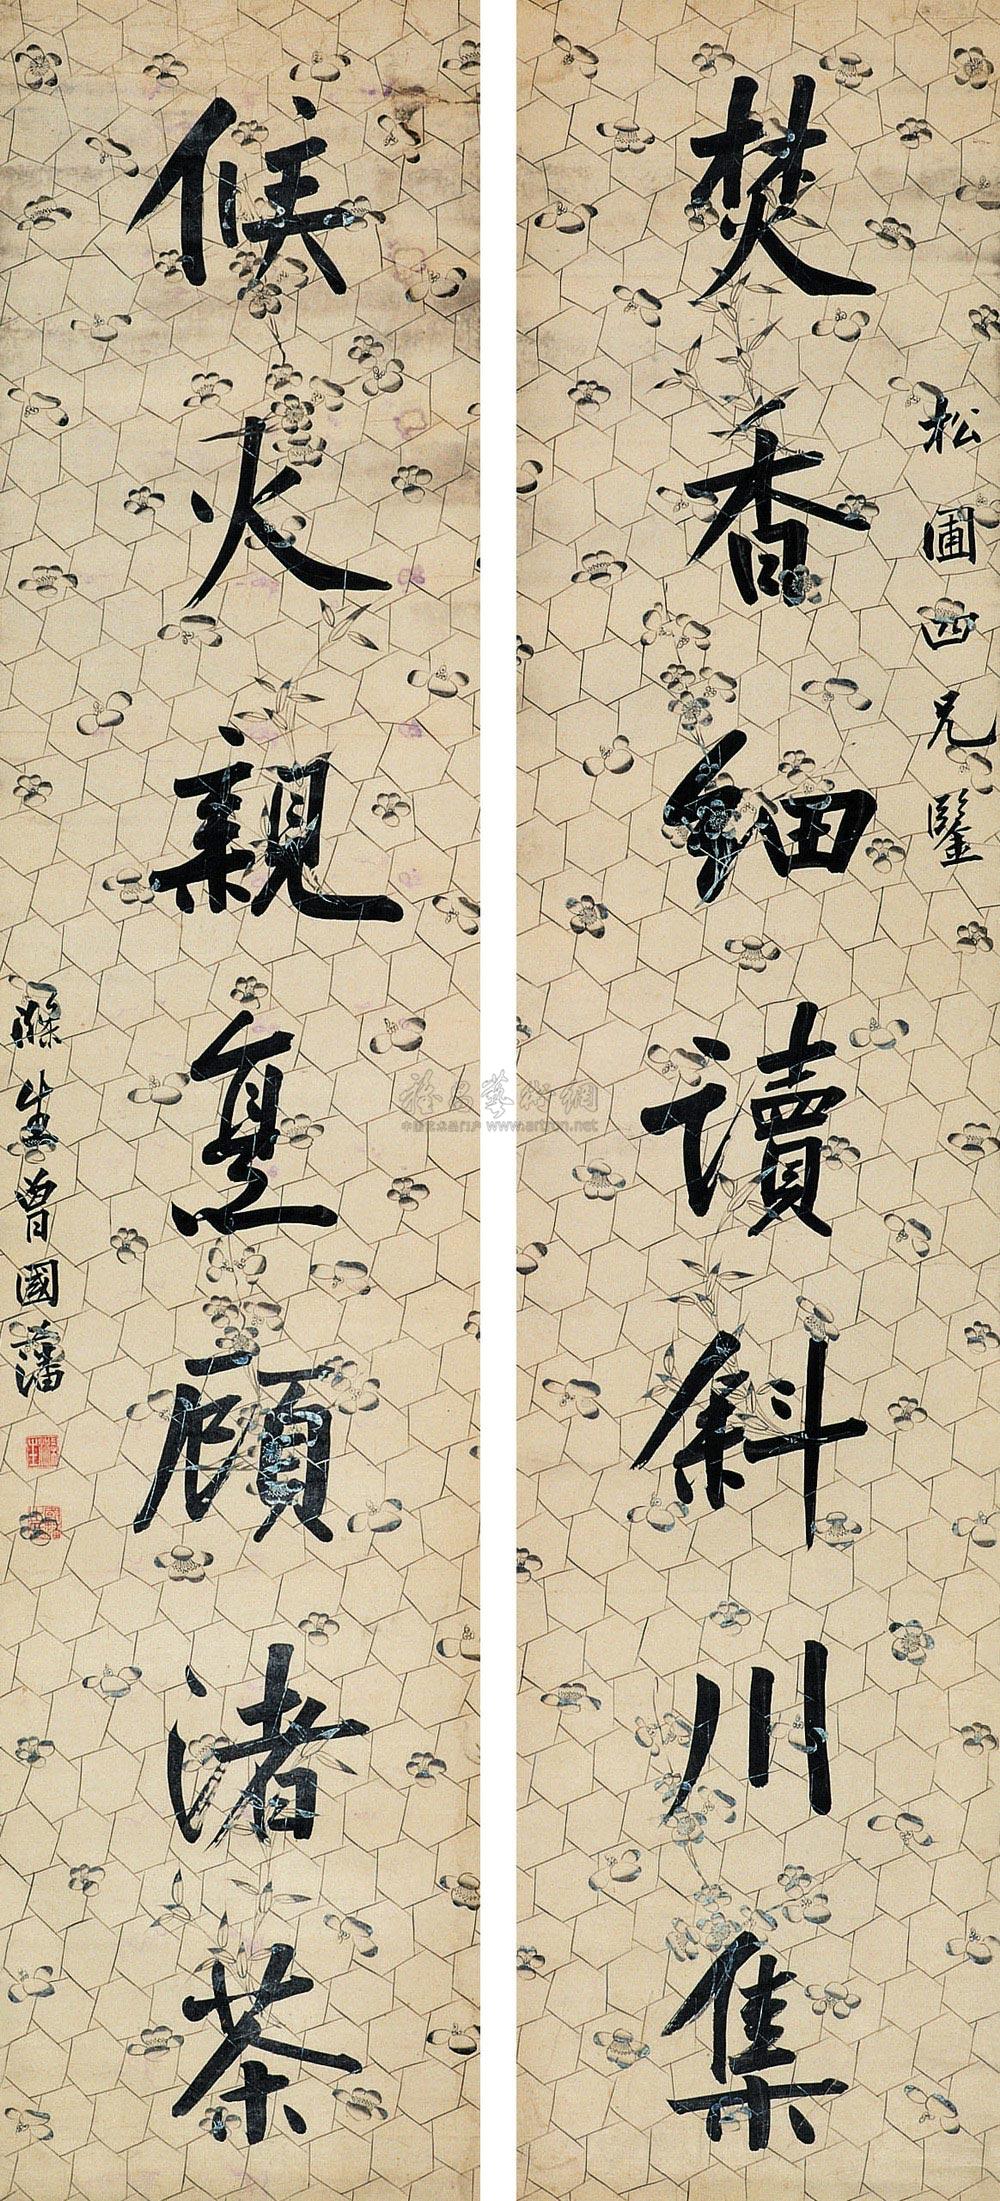 焚香細讀斜川集
松圃四兄鑒
候火親烹顧渚茶
滌生曾國藩
www.artron.net